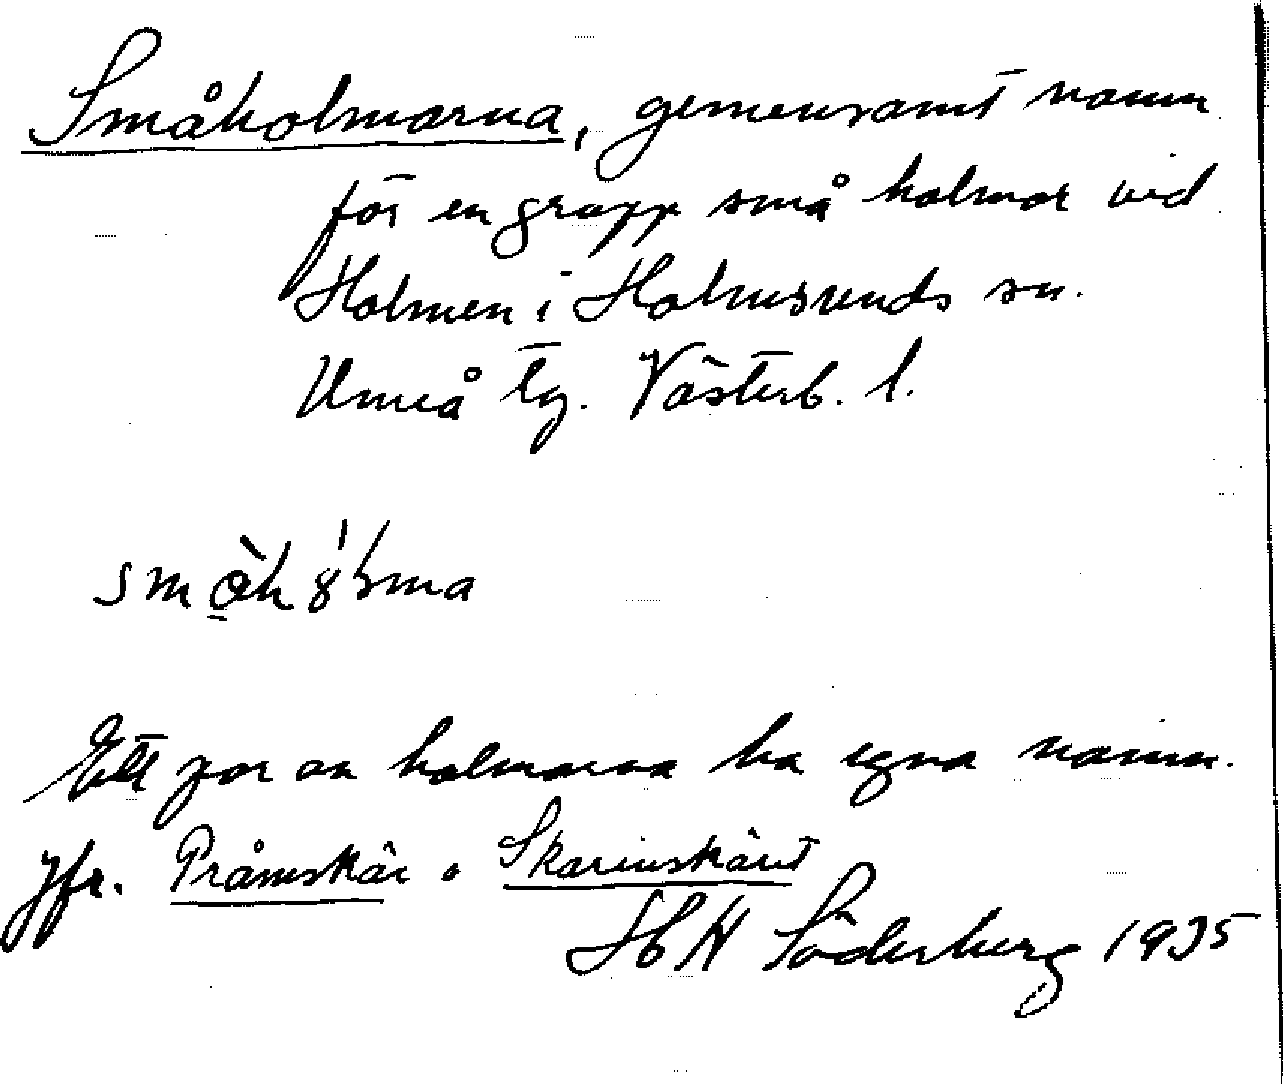 Småholmarna, gemensamt namn
för en grupp små holmar vid
Holmen i Holmsunds sn.
Umeå tg. Västerb. l.
Ett par av holmarna ha egna namn.
Jfr. Pråmskär o Skarinskäret
H Söderberg 1935